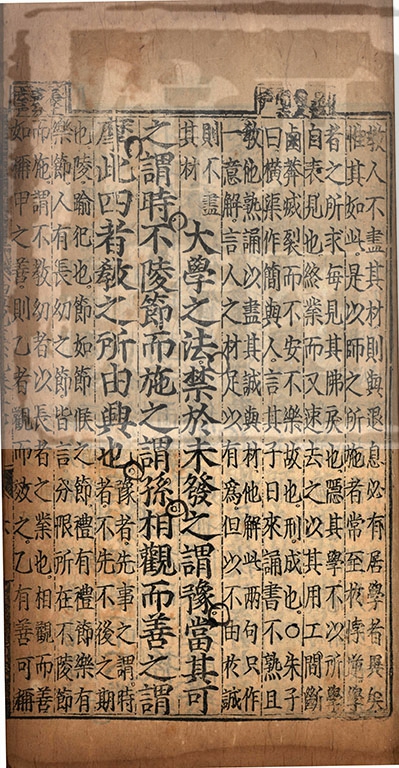 教人不盡其材則與退息必有居學者異矣
惟其如此是以師之所施者常至於悖逆學
者之所求每見其拂戾也隱其學不以所學
自表見也終業而又速去之以其用工間斷
鹵莽滅裂而不安不樂故也刑成也○朱子
曰橫渠作簡與人言其子日來誦書不熟且
教他熟誦以盡其誠與材他解此兩句只作
一意解言人之材足以有爲但以不由於誠
則不盡
其材
大學之法禁於未發之謂豫當其可
之謂時不陵節而施之謂孫相觀而善之謂
摩此四者教之所由興也
豫者先事之謂時
者不先不後之期
也陵踰犯也節如節候之節禮有禮節樂有
樂節人有長幼之節皆言分限所在不陵節
而施謂不教幼者以長者之業也相觀而善
如稱甲之善則乙者觀而效之乙有善可稱